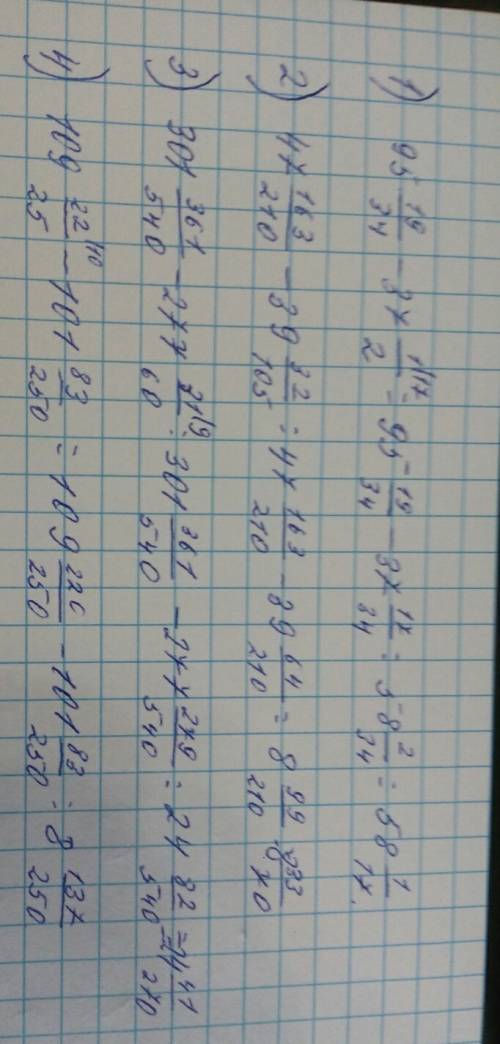 1) 95 19/34 - 37 1/2 |17 = 95 19/34 - 37 17/34 = 58 2/34 = 58 1/17.
2) 47 163/210 - 39 32/105 = 47 163/210 - 39 64/210 = 8 99/210 8 33/70
3) 301 361/540 - 277 21/60 |9 = 301 361/540 - 277 279/540 = 24 82/540 = 24 41/270
4) 109 22/25 |10 - 101 83/250 = 109 220/250 - 101 83/250 = 8 137/250